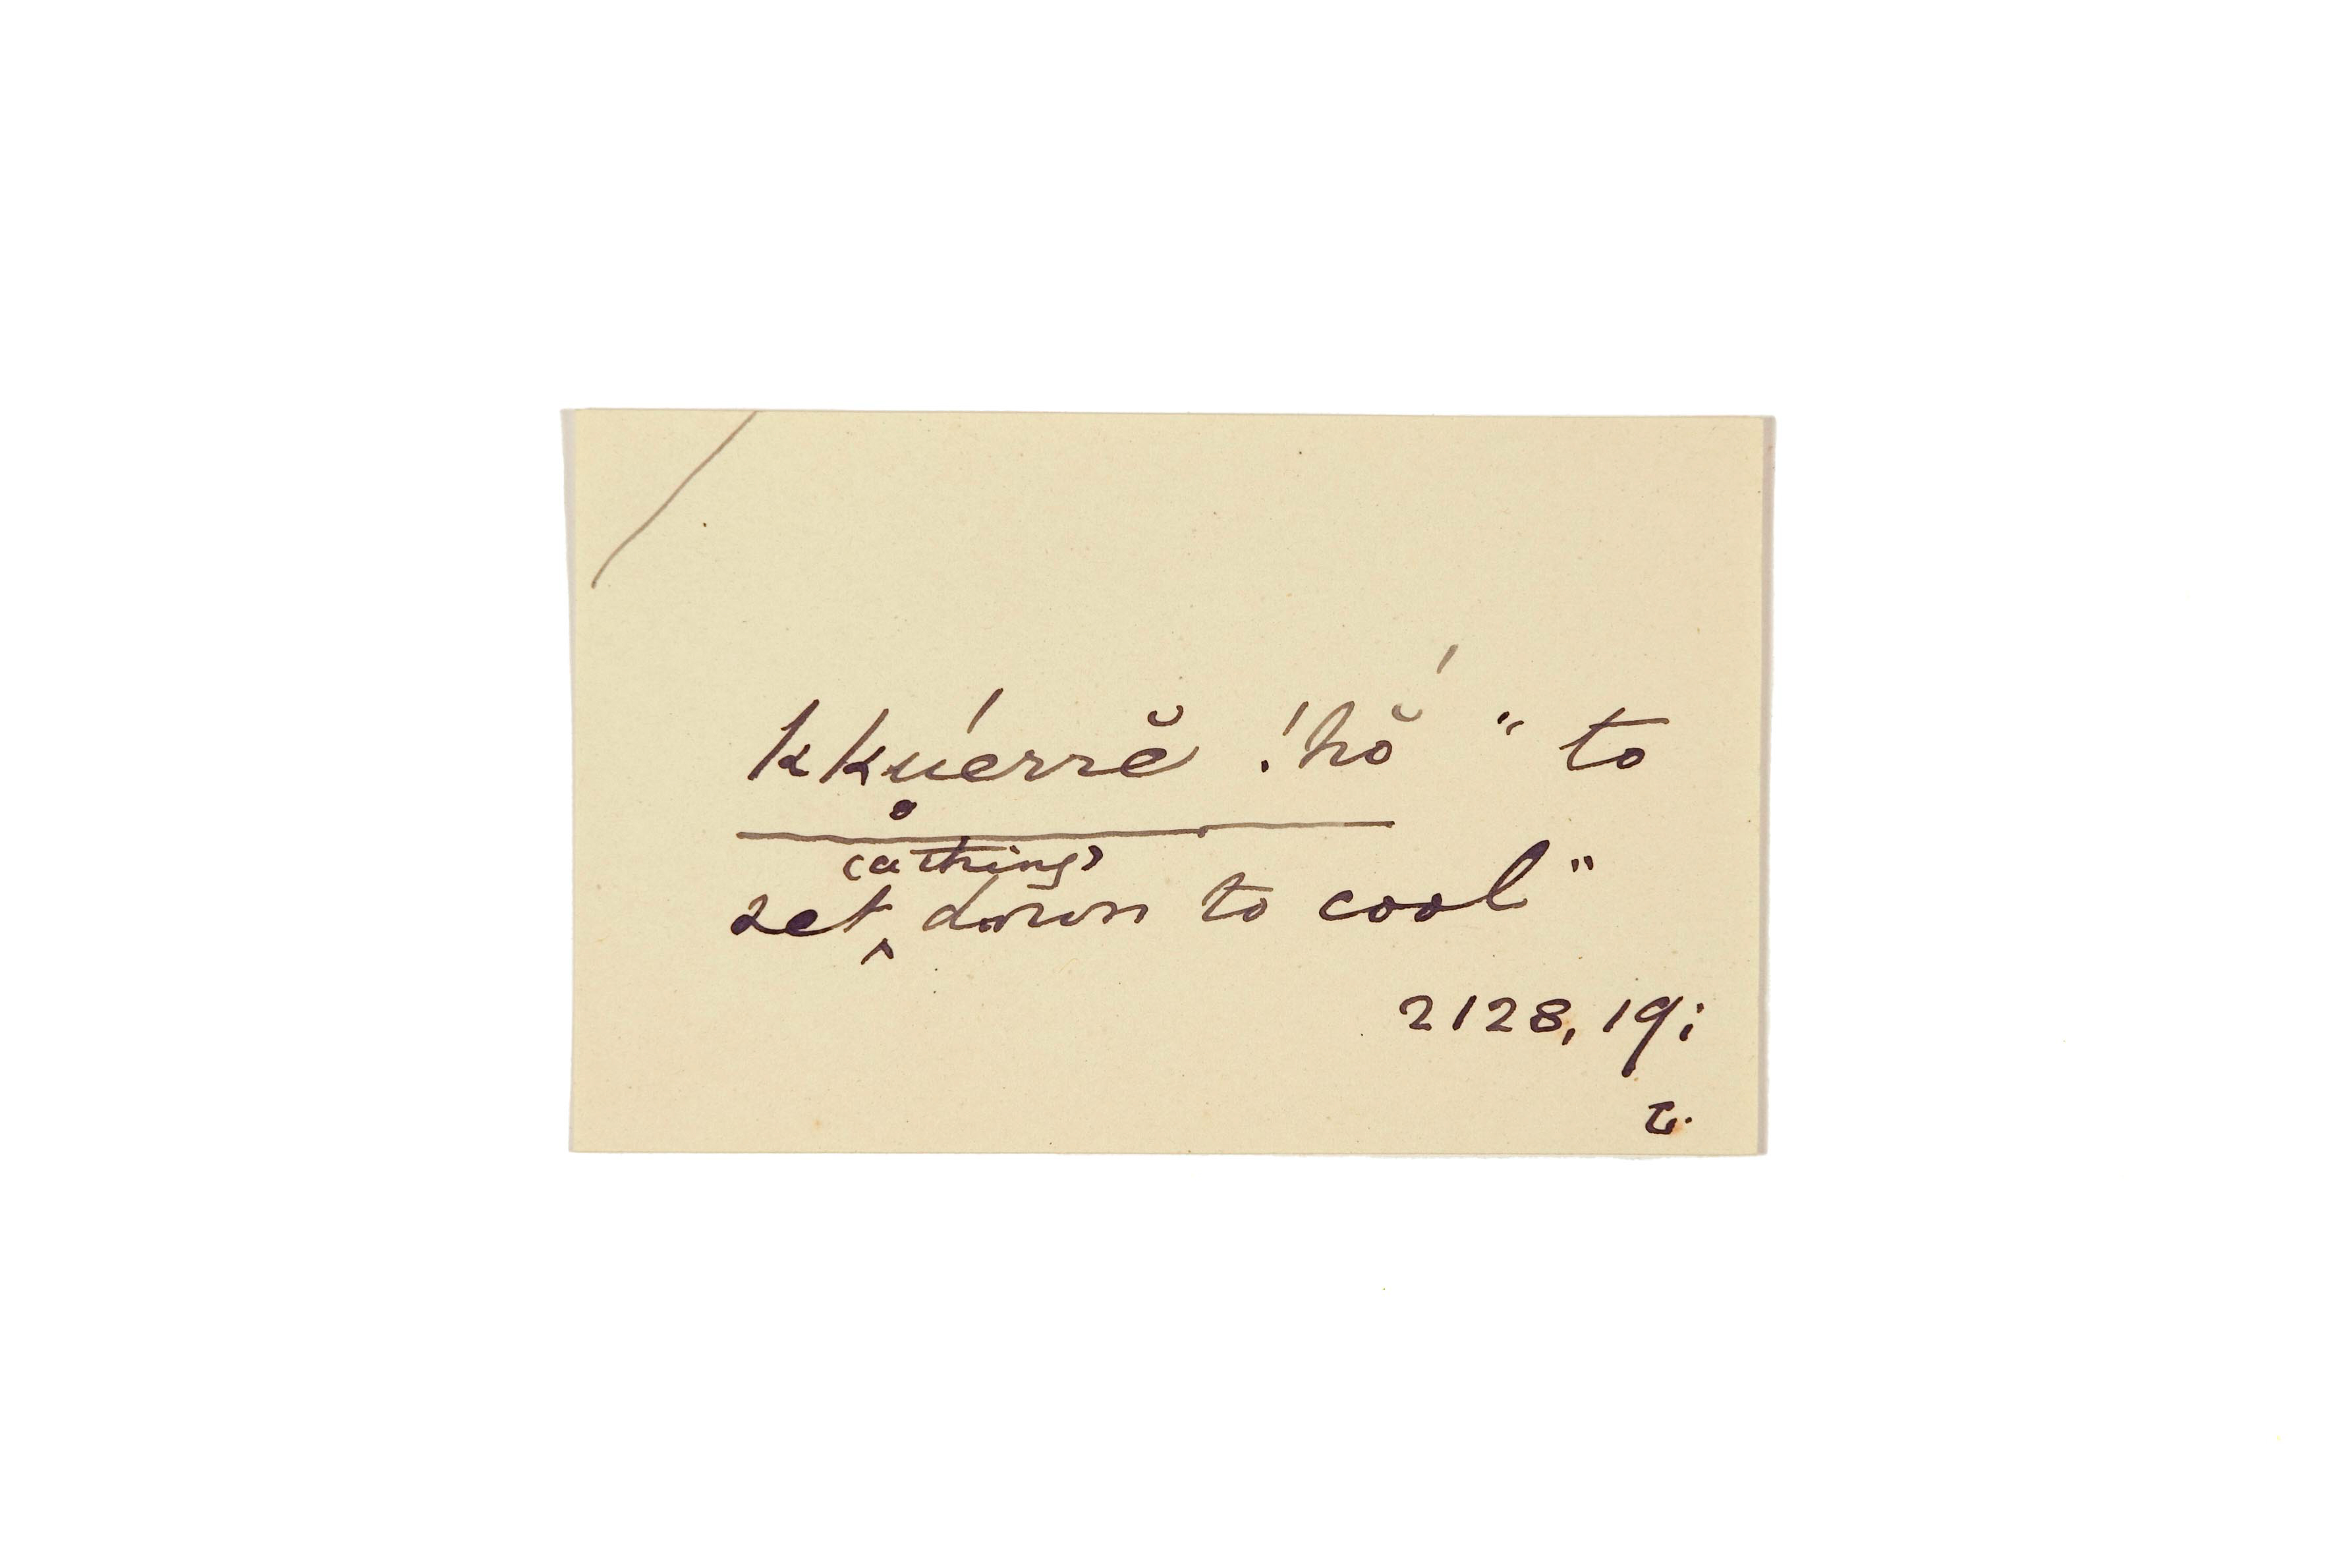 kkụ́errĕ !hŏ́ " to
set ‸ (a thing) down to cool"
2128, 19;
τ.